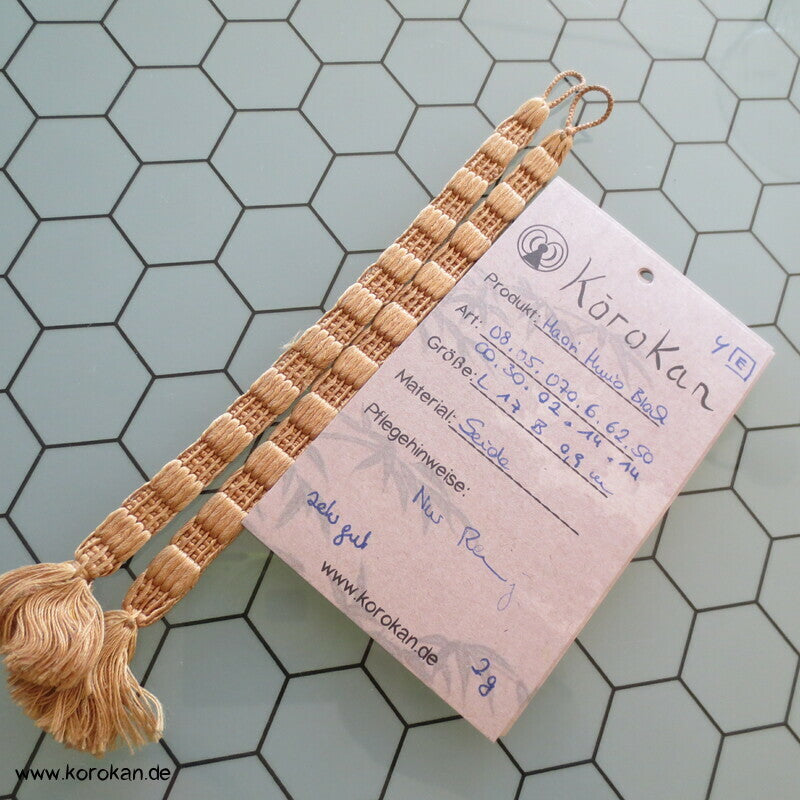 Kōrokan
Y E
Produkt: Haori Himo Black
Art: 08.05.070.6.62.50
00.30.02.14.14
Größe: L 17 B 0,9 cm
Material: Seide
Pflegehinweise:
Nur
sehr gut
www.korokan.de
2g
www.korokan.de